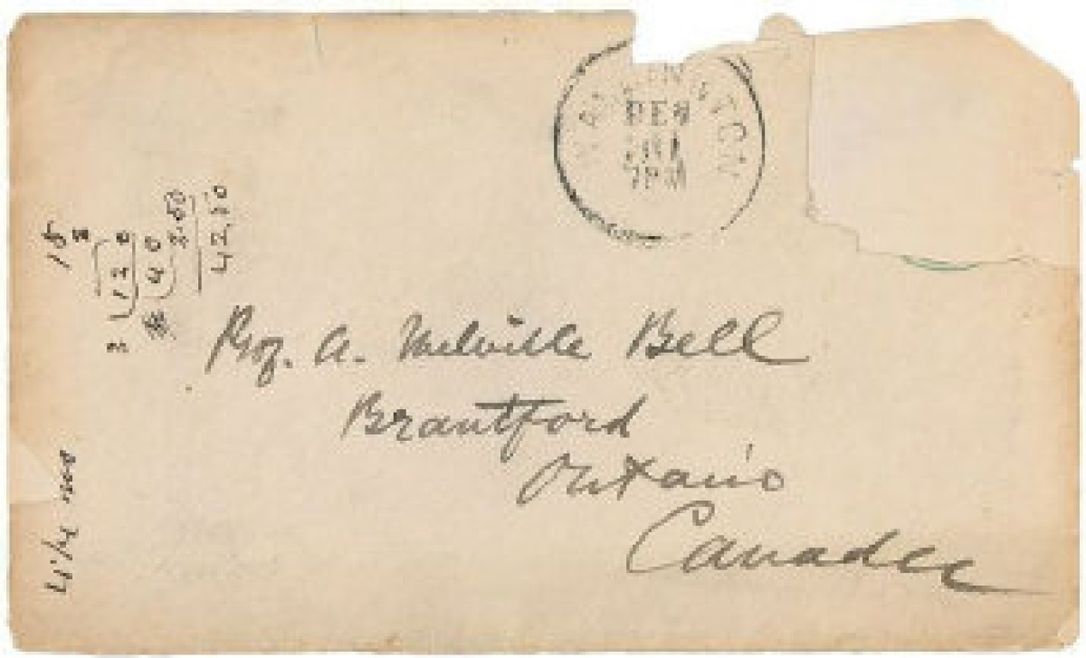 WASHINGTON
7PM
Prof. A. Melville Bell
Brantford
Ontario
Canada
18
3 120
$ 40
2.50
42.50
4 1/4